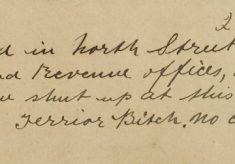 2
d in North Street
nd Revenue offices,
e shut up at this
Terrior Bitch. No c